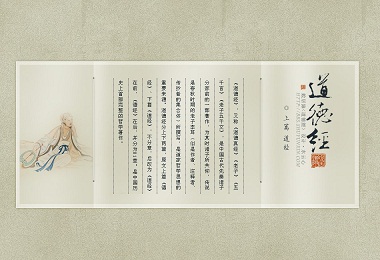 道德經
◎ 上篇 道经
《道德经》，又称《道德真经》、《老子》、《五
千言》、《老子五千文》，是中国古代先秦诸子
分家前的一部著作，为其时诸子所共仰，传说
是春秋时期的老子李耳（似是作者、注释者、
传抄者的集合体）所撰写，是道家哲学思想的
重要来源。道德经分上下两篇，原文上篇《德
经》、下篇《道经》，不分章，后改为《道经》
在前，《德经》在后，并分为81章，是中国历
史上首部完整的哲学著作。